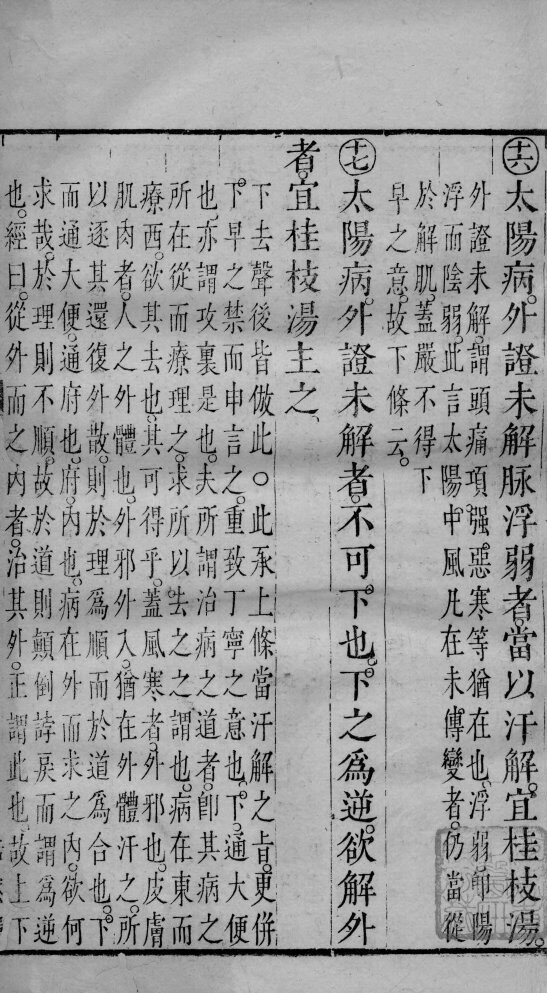 十六太陽病外證未解脉浮弱者當以汗解宜桂枝湯。
外證未解。謂頭痛項強。惡寒等猶在也。浮弱即陽
浮而陰弱。此言太陽中風。凡在未傳變者。仍當從
於解肌。蓋嚴不得下
早之意。故下條云。
十七太陽病。外證未解者。不可下也。下之為逆。欲解外
者。宜桂枝湯主之、
下去聲後皆倣此〇此承上條當汗解之旨。更併
下早之禁而申言之。重致丁寧之意也。下。通大便
也。亦謂攻裏是也。夫所謂治病之道者。卽其病之
所在從而療理之。求所以去之之謂也。病在東而
療西。欲其去也。其可得乎。蓋風寒者。外邪也。皮膚
肌肉者。人之外體也。外邪外入。猶在外體。汗之。所
以逐其還復外散。則於理為順而於道為合也。下
而通大便。通府也。府內也。病在外而求之內。欲何
求哉。於理則不順。故於道則顛倒誖戾而謂為逆
也。經曰。從外而之內者。治其外。正謂此也。故上下